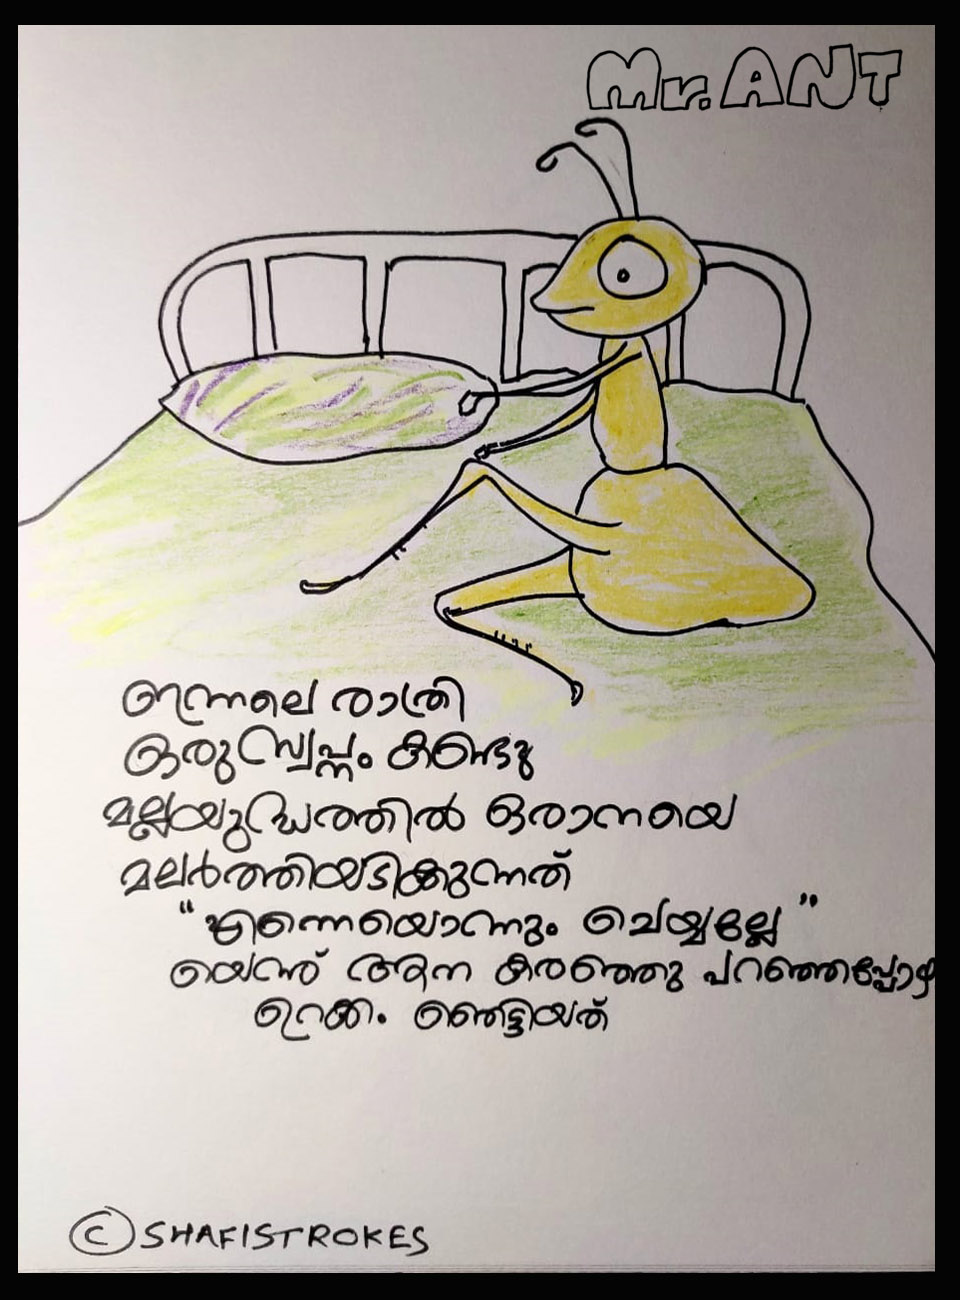 Mr. ANT
ഇന്നലെ രാത്രി
ഒരു സ്വപ്നം കണ്ടു
മല്ലയുദ്ധത്തിൽ ഒരാനയെ
മലർത്തിയടിക്കുന്നത്
"എന്നെയൊന്നും ചെയ്യല്ലേ"
യെന്ന് ആന കരഞ്ഞു പറഞ്ഞപ്പോഴ
ഉറക്കം ഞെട്ടിയത്
© SHAFISTROKES